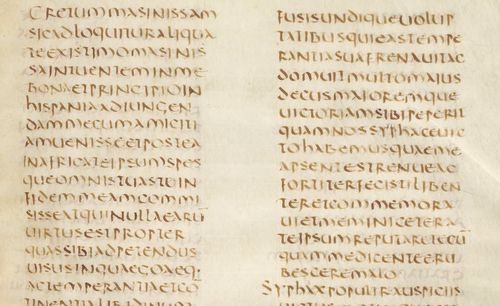 CRETUMMASINISSAM
SICADLOQUITURALIQUA
TEEXISTIMOMASINIS
SAINTUENTEMINME
BONAETPRINCIPIOIN
HISPANIAADIUNGEN
DAMMECUMAMICITI
AMUENISSEETPOSTEA
INAFRICATEIPSUMSPES
QUEOMNISTUASTUIN
FIDEMMEAMCOMMI
SISSEATQUINULLAEARU̅
UIRTUSESTPROPTER
QUASSIBIADPETENDUS
UISUSINQUAEGOAEQ·
ACTEMPERANTIAETCO
TINENTIALIBIDINUM
FUSISUNDIQUEUOLUP
TATIBUSQUIEASTEMPE
RANTIASUAFRENAUITAC
DOMUITMULTOMAIUS
DECUSMAIOREMQUE
UICTORIAMSIBIPEPERIT
QUAMNOSSYPHACEUIC
TOHABEMUSQUAEME
APSENTESTRENUEAC
FORTITERFECISTILIBEN
TERETCOMMEMORA
UIETMEMINICETERA
TEIPSUMREPUTARETECU̅
QUAMMEDICENTEERU
BESCEREMALO
SYPHAXPOPULIRAUSPICIIS